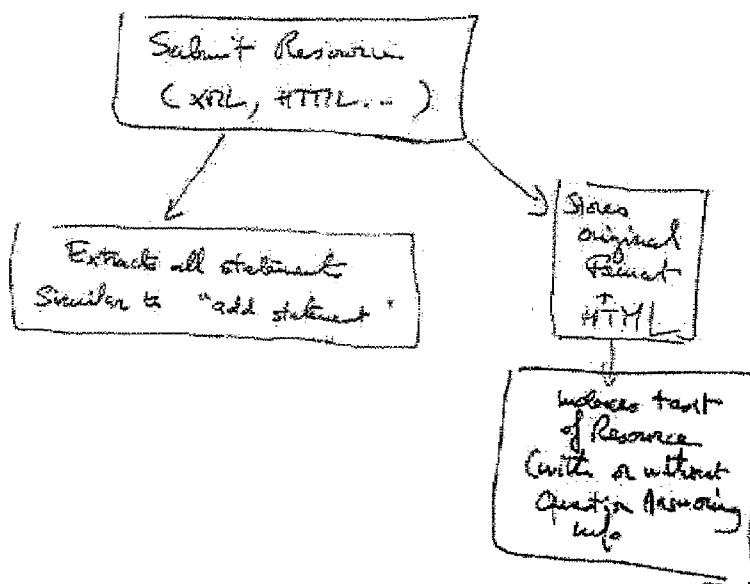 Submit Resource
(XML, HTML...)
Extracts all statements
Similar to "add statement"
Stores
original
Format
+
HTML
Indexes text
of Resource
(with or without
Question Answering
info